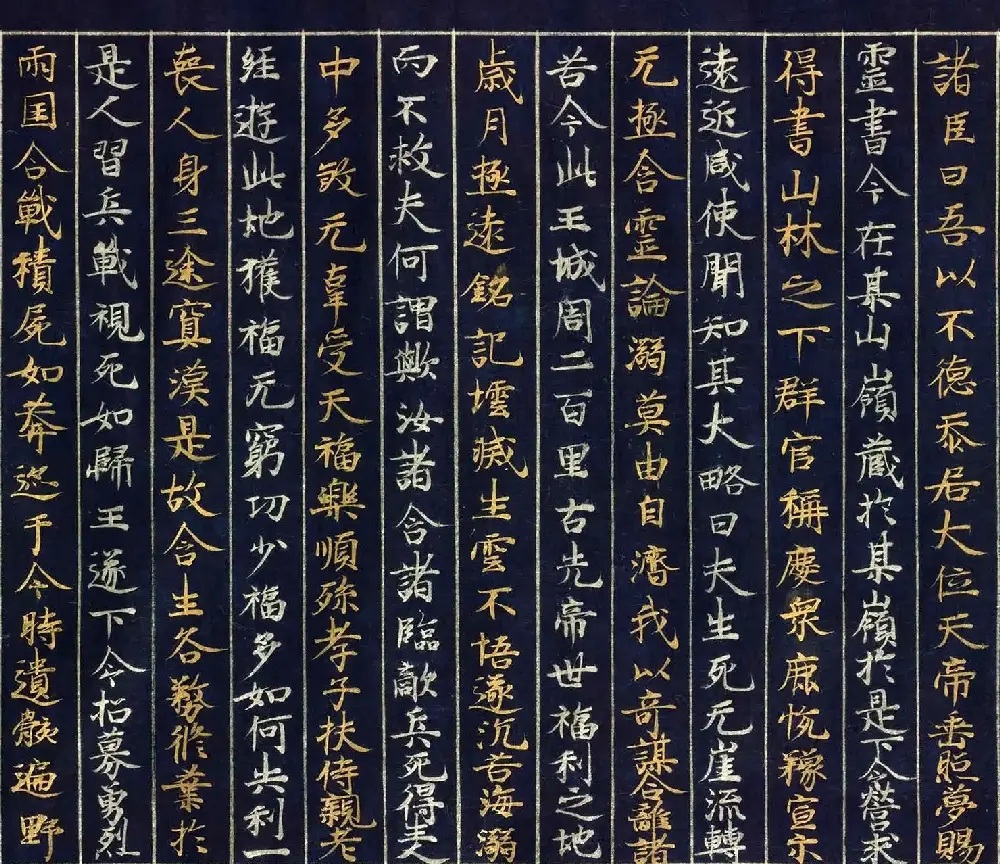 諸臣曰吾以不德忝居大位天帝垂照夢賜
靈書今在某山嶺藏於某嶺於是下令營求
得書山林之下群官稱慶衆庶悅豫宣示
遠近咸使聞知其大略曰夫生死无崖流轉
无極含靈論溺莫由自濟我以奇謀令離諸
苦今此王城周二百里古先帝世福利之地
歲月極遠銘記堙滅生雲不悟遂沉苦海溺
而不救夫何謂歟汝諸含諸臨敵兵死得生人
中多煞无辜受天福樂順孫孝子扶侍親老
經遊此地獲福无窮功少福多如何失利一
喪人身三途冥漠是故含生各務修業於
是人習兵戰視死如歸王遂下令招募勇烈
兩国合戰積屍如莽迄于今時遺骸遍野